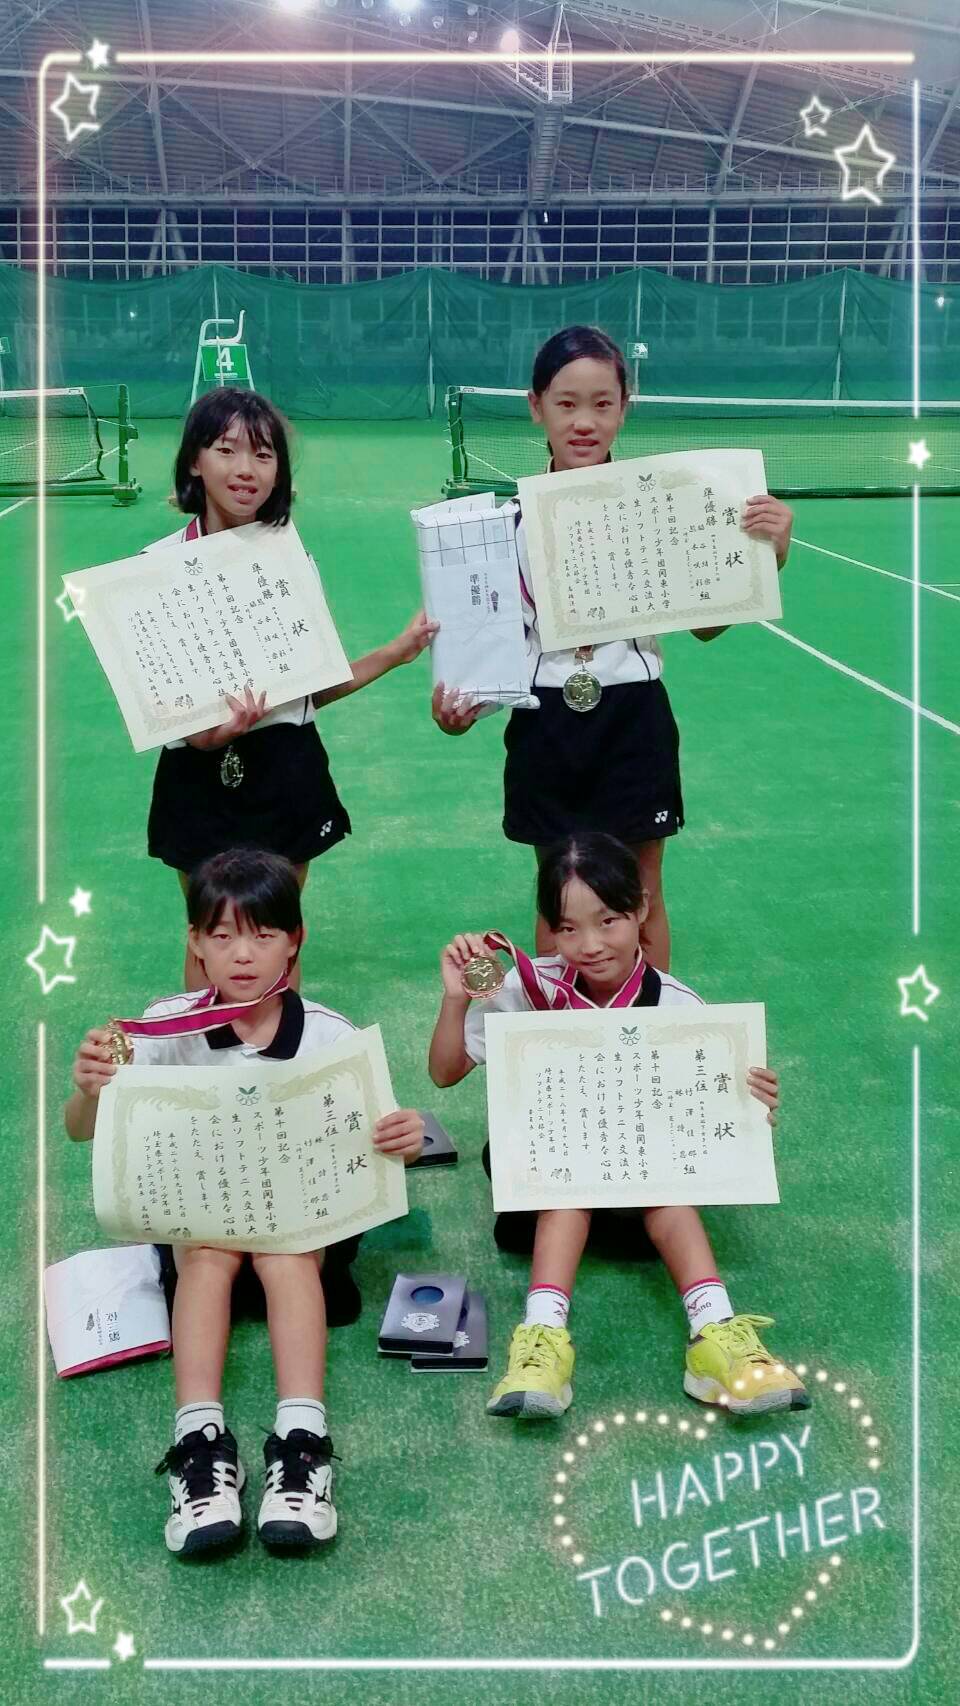 4
賞状
準優勝
組
第十回記念
スポーツ少年団関東小学
生ソフトテニス交流大
会における優秀な心技
をたたえ、賞します。
平成二十八年九月十九日
埼玉県スポーツ少年団
ソフトテニス部会
賞状
準優勝
組
第十回記念
スポーツ少年団関東小学
生ソフトテニス交流大
会における優秀な心技
をたたえ、賞します。
平成二十八年九月十九日
埼玉県スポーツ少年団
ソフトテニス部会
準優勝
賞状
第三位
組
第十回記念
スポーツ少年団関東小学
生ソフトテニス交流大
会における優秀な心技
をたたえ、賞します。
平成二十八年九月十九日
埼玉県スポーツ少年団
ソフトテニス部会
賞状
第三位
組
第十回記念
スポーツ少年団関東小学
生ソフトテニス交流大
会における優秀な心技
をたたえ、賞します
平成二十八年九月十九日
埼玉県スポーツ少年団
ソフトテニス部会
第三位
HAPPY
TOGETHER